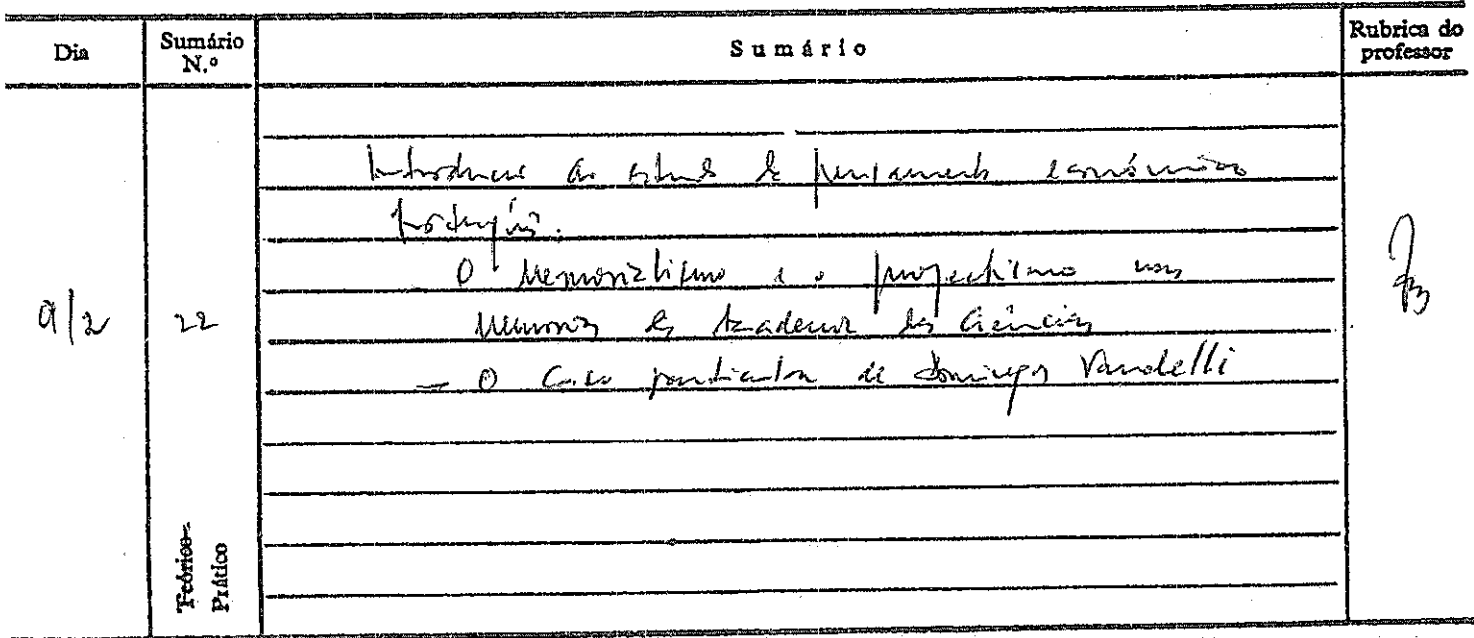 Dia
Sumário N.º
Sumário
Rubrica do professor
9/2
22
Introdução ao estudo do pensamento económico
português.
O memorialismo e o projectismo nas
Memórias da Academia das Ciências
— O caso particular de Domingos Vandelli
Teórico-
Prático